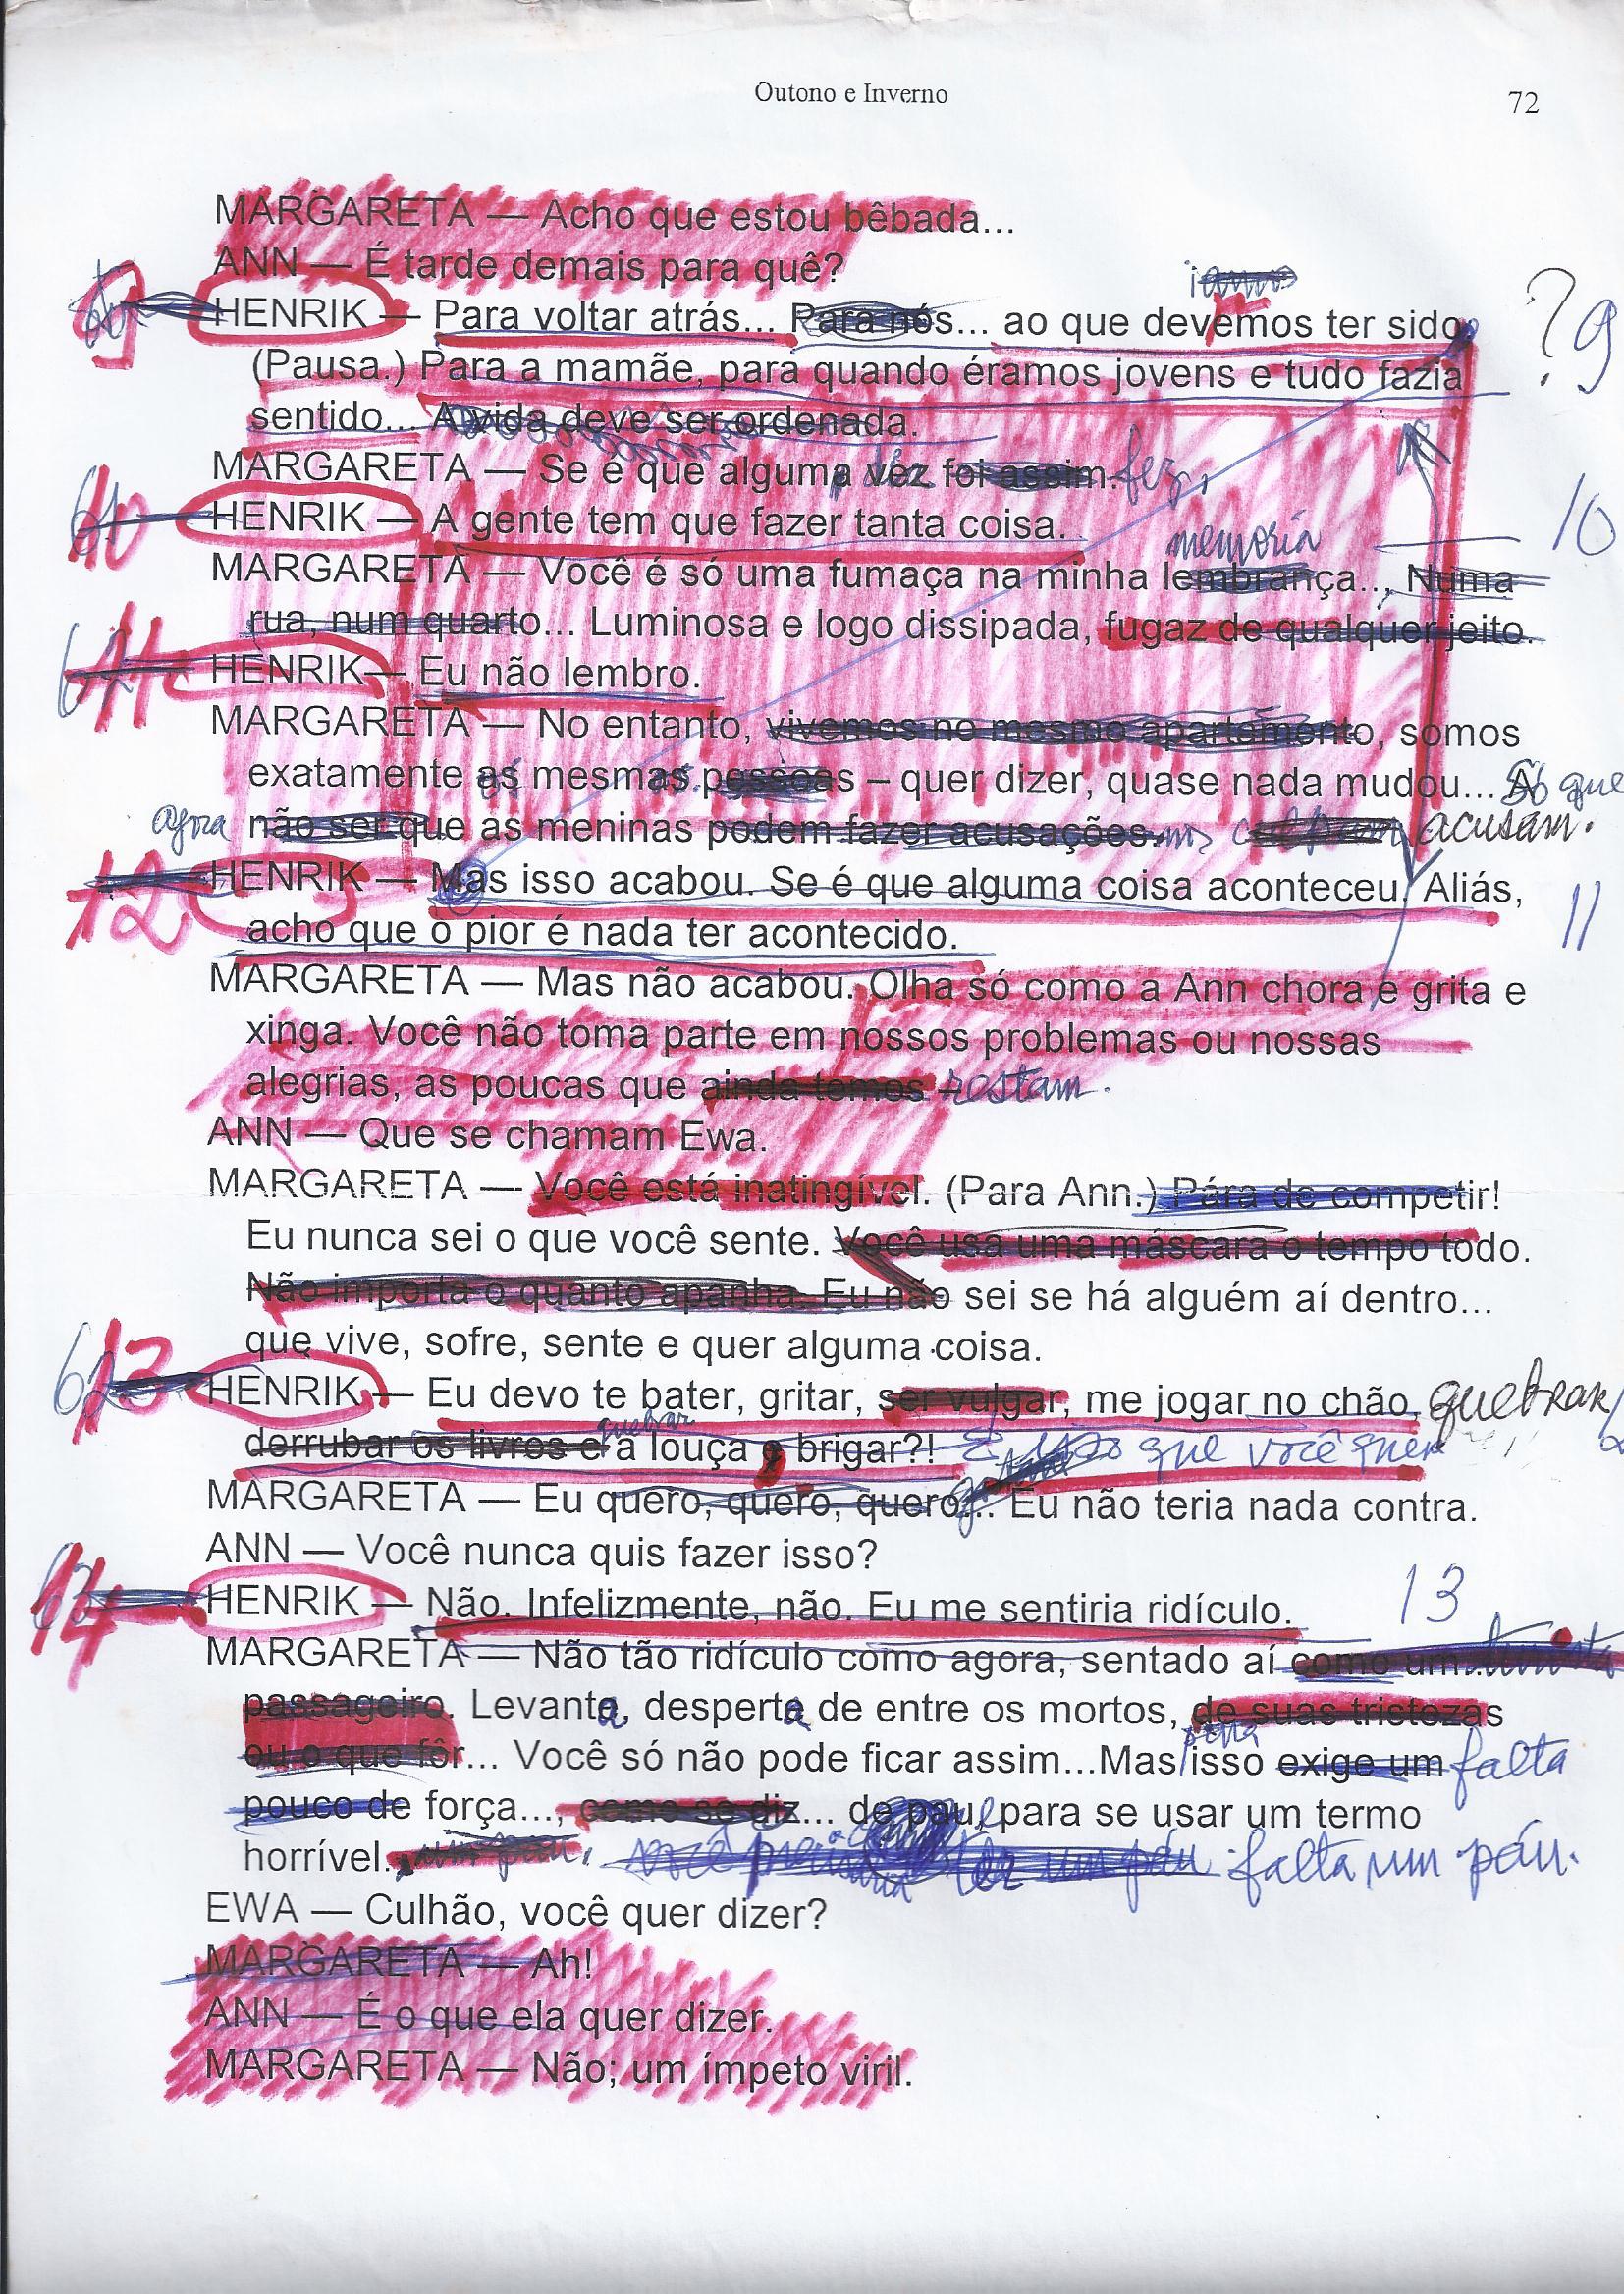 Outono e Inverno
72
MARGARETA — Acho que estou bêbada...
ANN — É tarde demais para quê?
9 HENRIK — Para voltar atrás... Para nós... ao que devemos ter sido. ? 9
(Pausa.) Para a mamãe, para quando éramos jovens e tudo fazia
sentido... A vida deve ser ordenada.
MARGARETA — Se é que alguma vez foi assim. fez,
10 HENRIK — A gente tem que fazer tanta coisa. 10
memória
MARGARETA — Você é só uma fumaça na minha lembrança... Numa
rua, num quarto... Luminosa e logo dissipada, fugaz de qualquer jeito.
11 HENRIK — Eu não lembro.
MARGARETA — No entanto, vivemos no mesmo apartamento, somos
exatamente as mesmas pessoas – quer dizer, quase nada mudou... A Só que
agora não ser que as meninas podem fazer acusações. acusam.
12 HENRIK — Mas isso acabou. Se é que alguma coisa aconteceu. Aliás,
acho que o pior é nada ter acontecido. 11
MARGARETA — Mas não acabou. Olha só como a Ann chora e grita e
xinga. Você não toma parte em nossos problemas ou nossas
alegrias, as poucas que ainda temos restam.
ANN — Que se chamam Ewa.
MARGARETA — Você está inatingível. (Para Ann.) Pára de competir!
Eu nunca sei o que você sente. Você usa uma máscara o tempo todo.
Não importa o quanto apanha. Eu não sei se há alguém aí dentro...
que vive, sofre, sente e quer alguma coisa.
13 HENRIK — Eu devo te bater, gritar, ser vulgar, me jogar no chão, quebrar
quebrar
derrubar os livros e a louça e brigar?! É isso que você quer
MARGARETA — Eu quero, quero, quero... Eu não teria nada contra.
ANN — Você nunca quis fazer isso?
14 HENRIK — Não. Infelizmente, não. Eu me sentiria ridículo. 13
MARGARETA — Não tão ridículo como agora, sentado aí como um turista
passageiro. Levanta, desperta de entre os mortos, de suas tristezas
ou o que fôr... Você só não pode ficar assim...Mas isso exige um falta
pouco de força..., como se diz... de pau, para se usar um termo
horrível. um páu, você ter um páu falta um páu.
EWA — Culhão, você quer dizer?
MARGARETA — Ah!
ANN — É o que ela quer dizer.
MARGARETA — Não; um ímpeto viril.